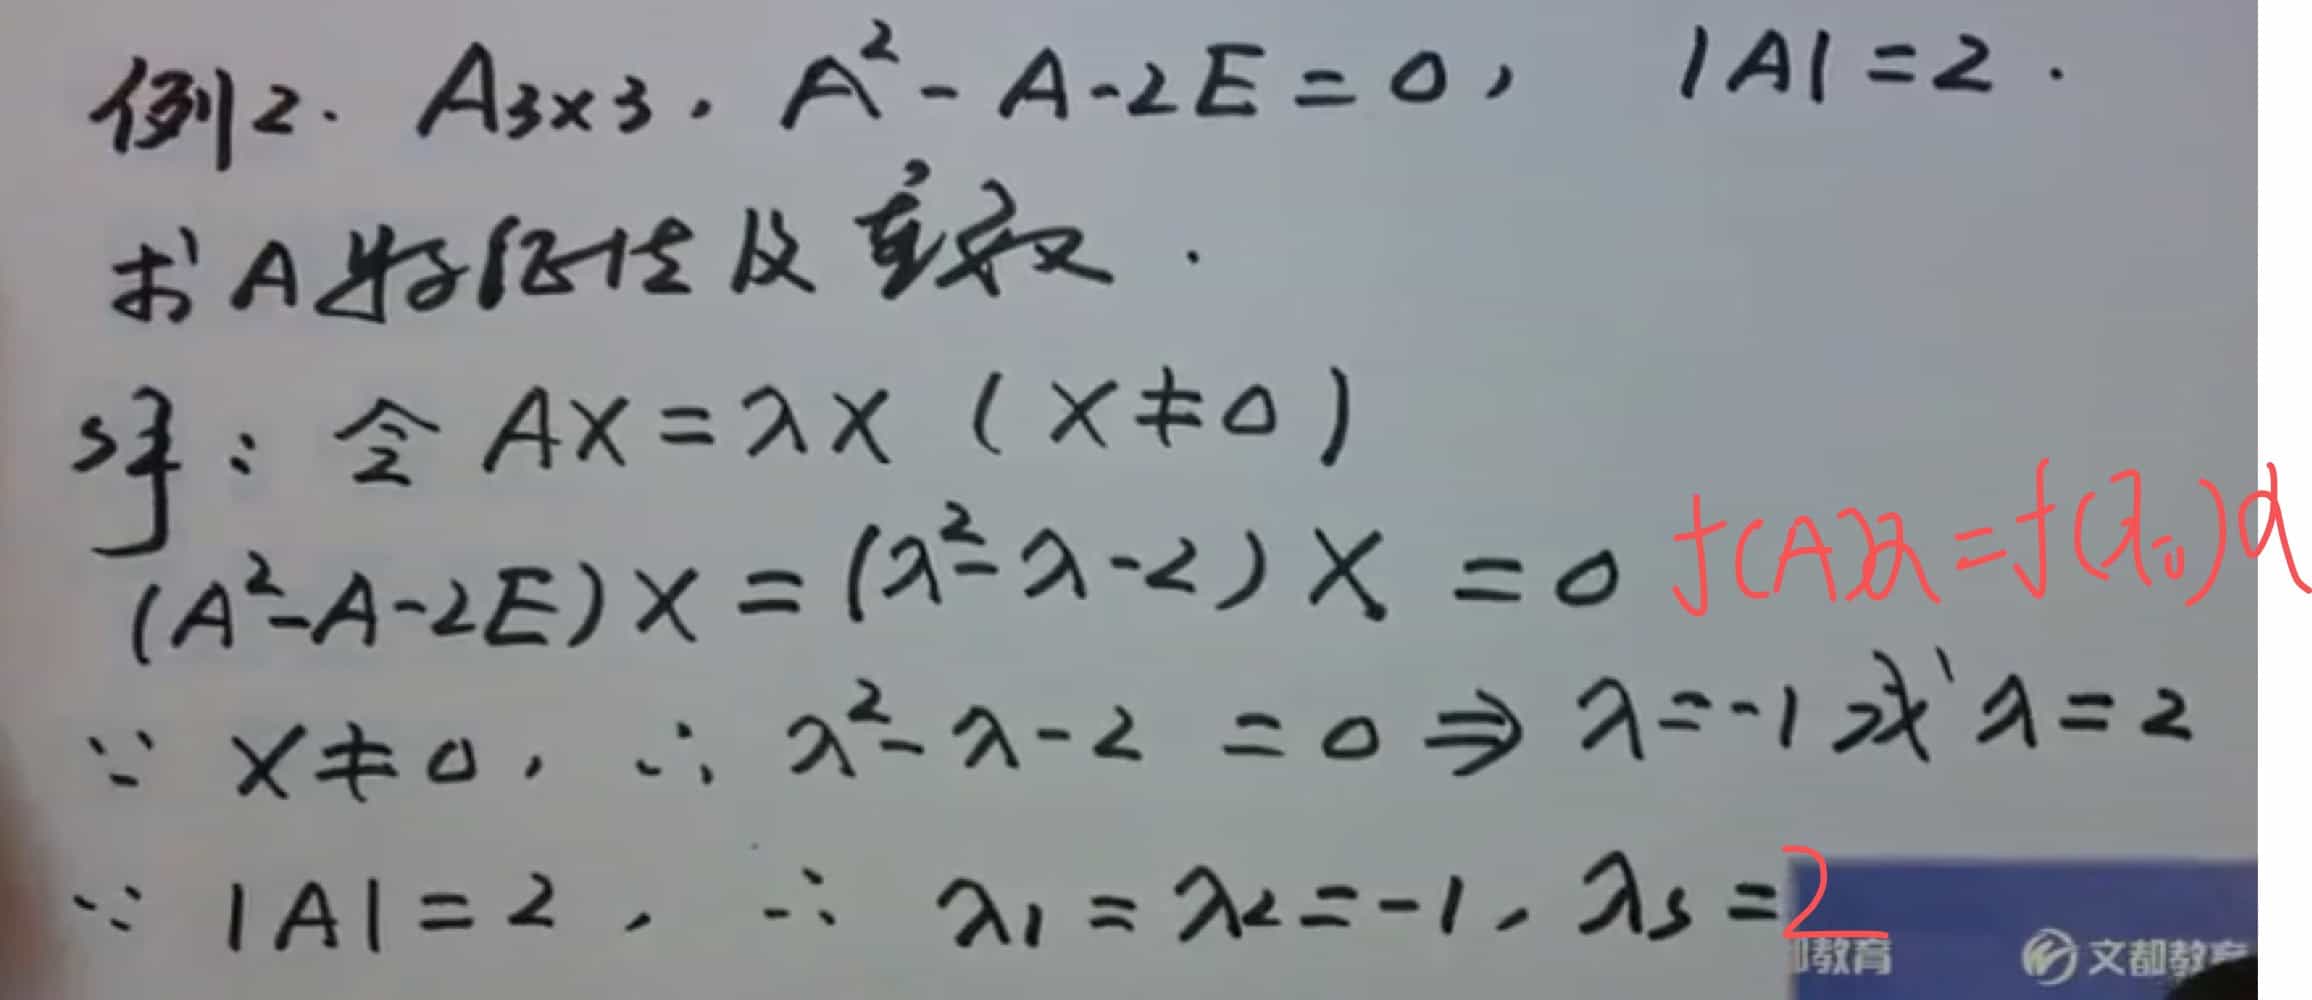 例2. A₃ₓ₃. A²-A-2E=0, |A|=2.
求A特征值及重数.
解: 令 AX=λX (X≠0)
(A²-A-2E)X=(λ²-λ-2)X=0 f(A)α=f(λ₀)α
∵ X≠0, ∴ λ²-λ-2=0⇒λ=-1或λ=2
∵ |A|=2, ∴ λ₁=λ₂=-1, λ₃=2
教育 文都教育